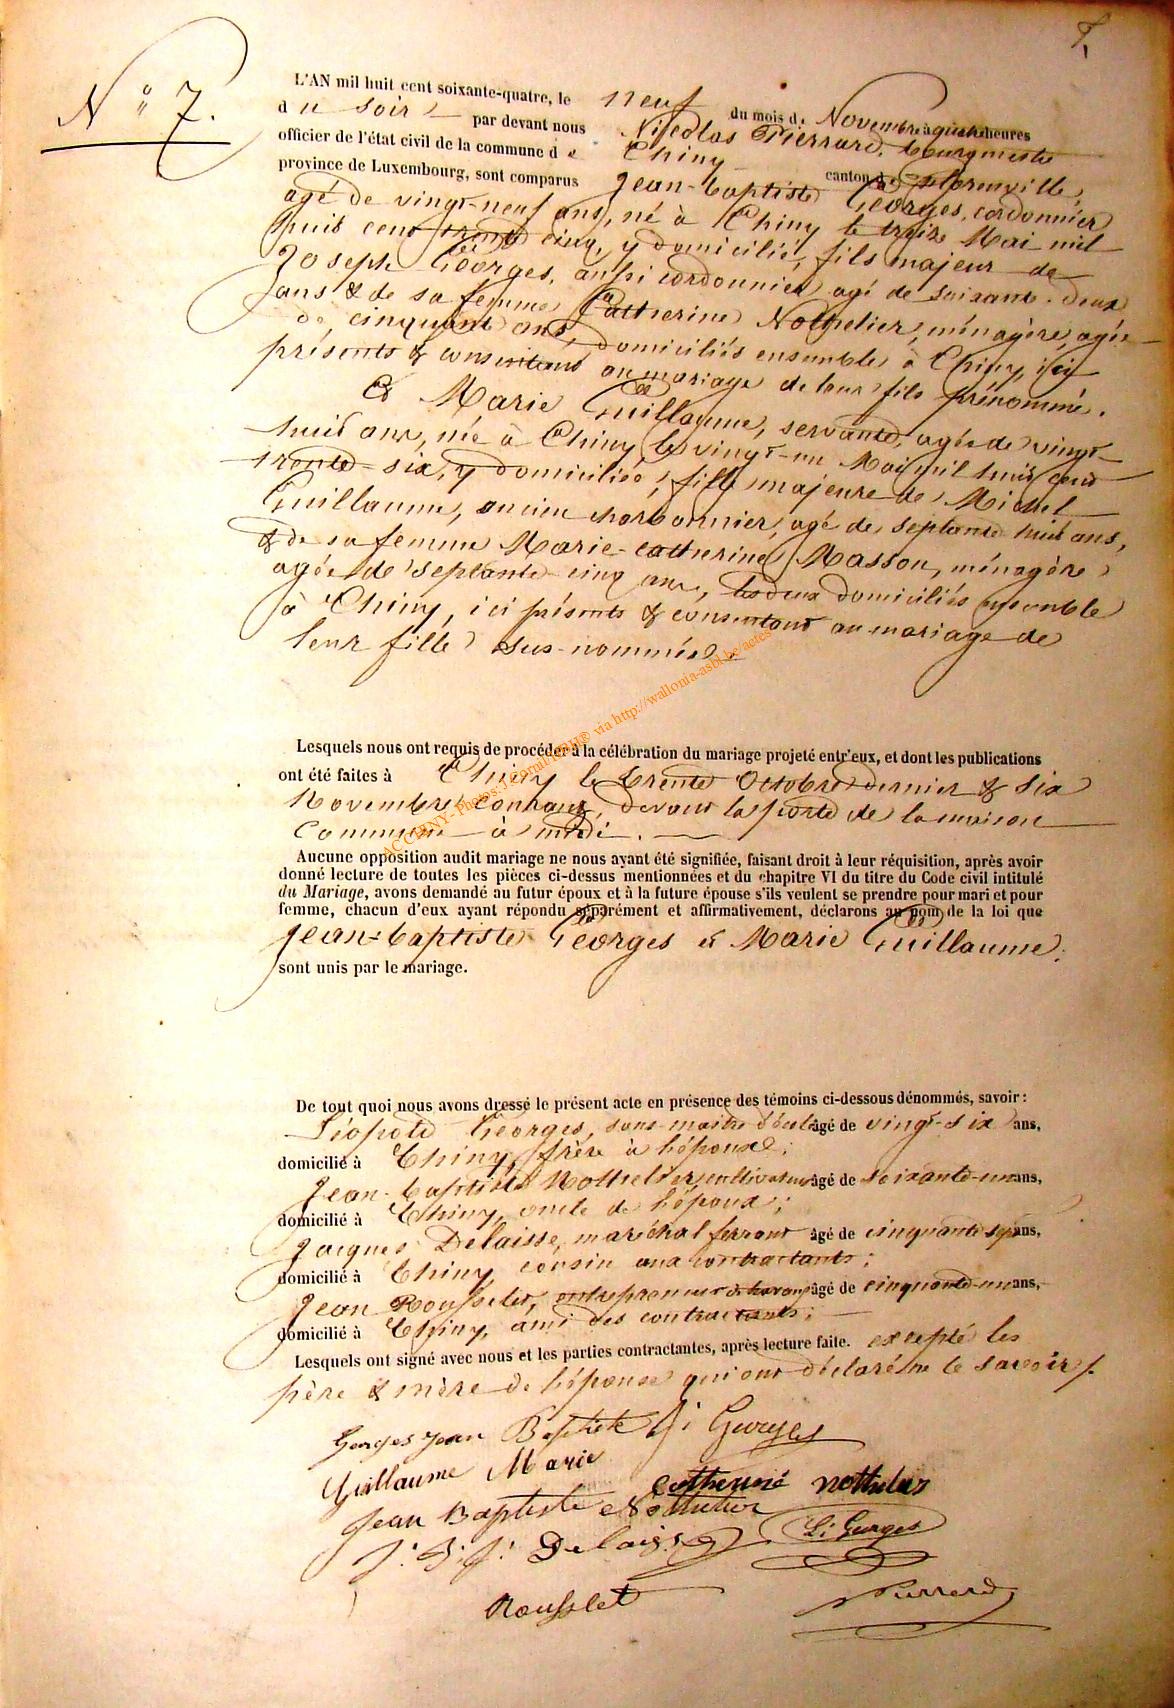 N° 7.
L'AN mil huit cent soixante-quatre, le neuf du mois d. Novembre à quatre heures
du soir par devant nous Nicolas Pierrard, bourgmestre
officier de l'état civil de la commune de Chiny canton de Florenville,
province de Luxembourg, sont comparus Jean-baptiste Georges, cordonnier
agé de vingt-neuf ans, né à Chiny le treize Mai mil
huit cent trente cinq, y domicilié, fils majeur de
Joseph Georges, aussi cordonnier agé de soixante-deux
ans & de sa femme Catherine Nothelier, ménagère, agée
de cinquante ans, domiciliés ensemble à Chiny, ici
présents & consentant au mariage de leur fils prénommé.
Et Marie Guillaume, servante, agée de vingt
huit ans, née à Chiny le vingt-un Mai mil huit cent
trente-six, y domiciliée, fille majeure de Michel
Guillaume, ancien charbonnier, agé de septante huit ans,
& de sa femme Marie-catherine Masson, ménagère
agée de septante cinq ans, les deux domiciliés ensemble
à Chiny, ici présents & consentant au mariage de
leur fille sus-nommée.
Lesquels nous ont requis de procéder à la célébration du mariage projeté entr'eux, et dont les publications
ont été faites à Chiny le trente Octobre dernier & six
Novembre courant, devant la porte de la maison
Commune à midi.
Aucune opposition audit mariage ne nous ayant été signifiée, faisant droit à leur réquisition, après avoir
donné lecture de toutes les pièces ci-dessus mentionnées et du chapitre VI du titre du Code civil intitulé
du Mariage, avons demandé au futur époux et à la future épouse s'ils veulent se prendre pour mari et pour
femme, chacun d'eux ayant répondu séparément et affirmativement, déclarons au nom de la loi que
Jean-baptiste Georges et Marie Guillaume.
sont unis par le mariage.
De tout quoi nous avons dressé le présent acte en présence des témoins ci-dessous dénommés, savoir:
Léopold Georges, sous-maître d'école âgé de vingt-six ans,
domicilié à Chiny, frère à l'époux;
Jean-baptiste Nothelier, cultivateur âgé de soixante-un ans,
domicilié à Chiny, oncle de l'époux;
Jacques Delaisse, maréchal ferrant âgé de cinquante sept ans,
domicilié à Chiny, cousin aux contractants;
Jean Rousselet, entrepreneur de travaux âgé de cinquante-un ans,
domicilié à Chiny, ami des contractants;
Lesquels ont signé avec nous et les parties contractantes, après lecture faite. excepté les
père & mère de l'épouse qui ont déclaré ne le savoir /.
Georges jean Baptiste Ji Georges
Guillaume Marie
catherine nothelier
Jean Baptiste Nothelier
Li Georges
J. J. Delaisse
Rousslet
Pierrard
ACCHINY- Photos: J.Cornil TPH® via http://wallonia-asbl.be/actes